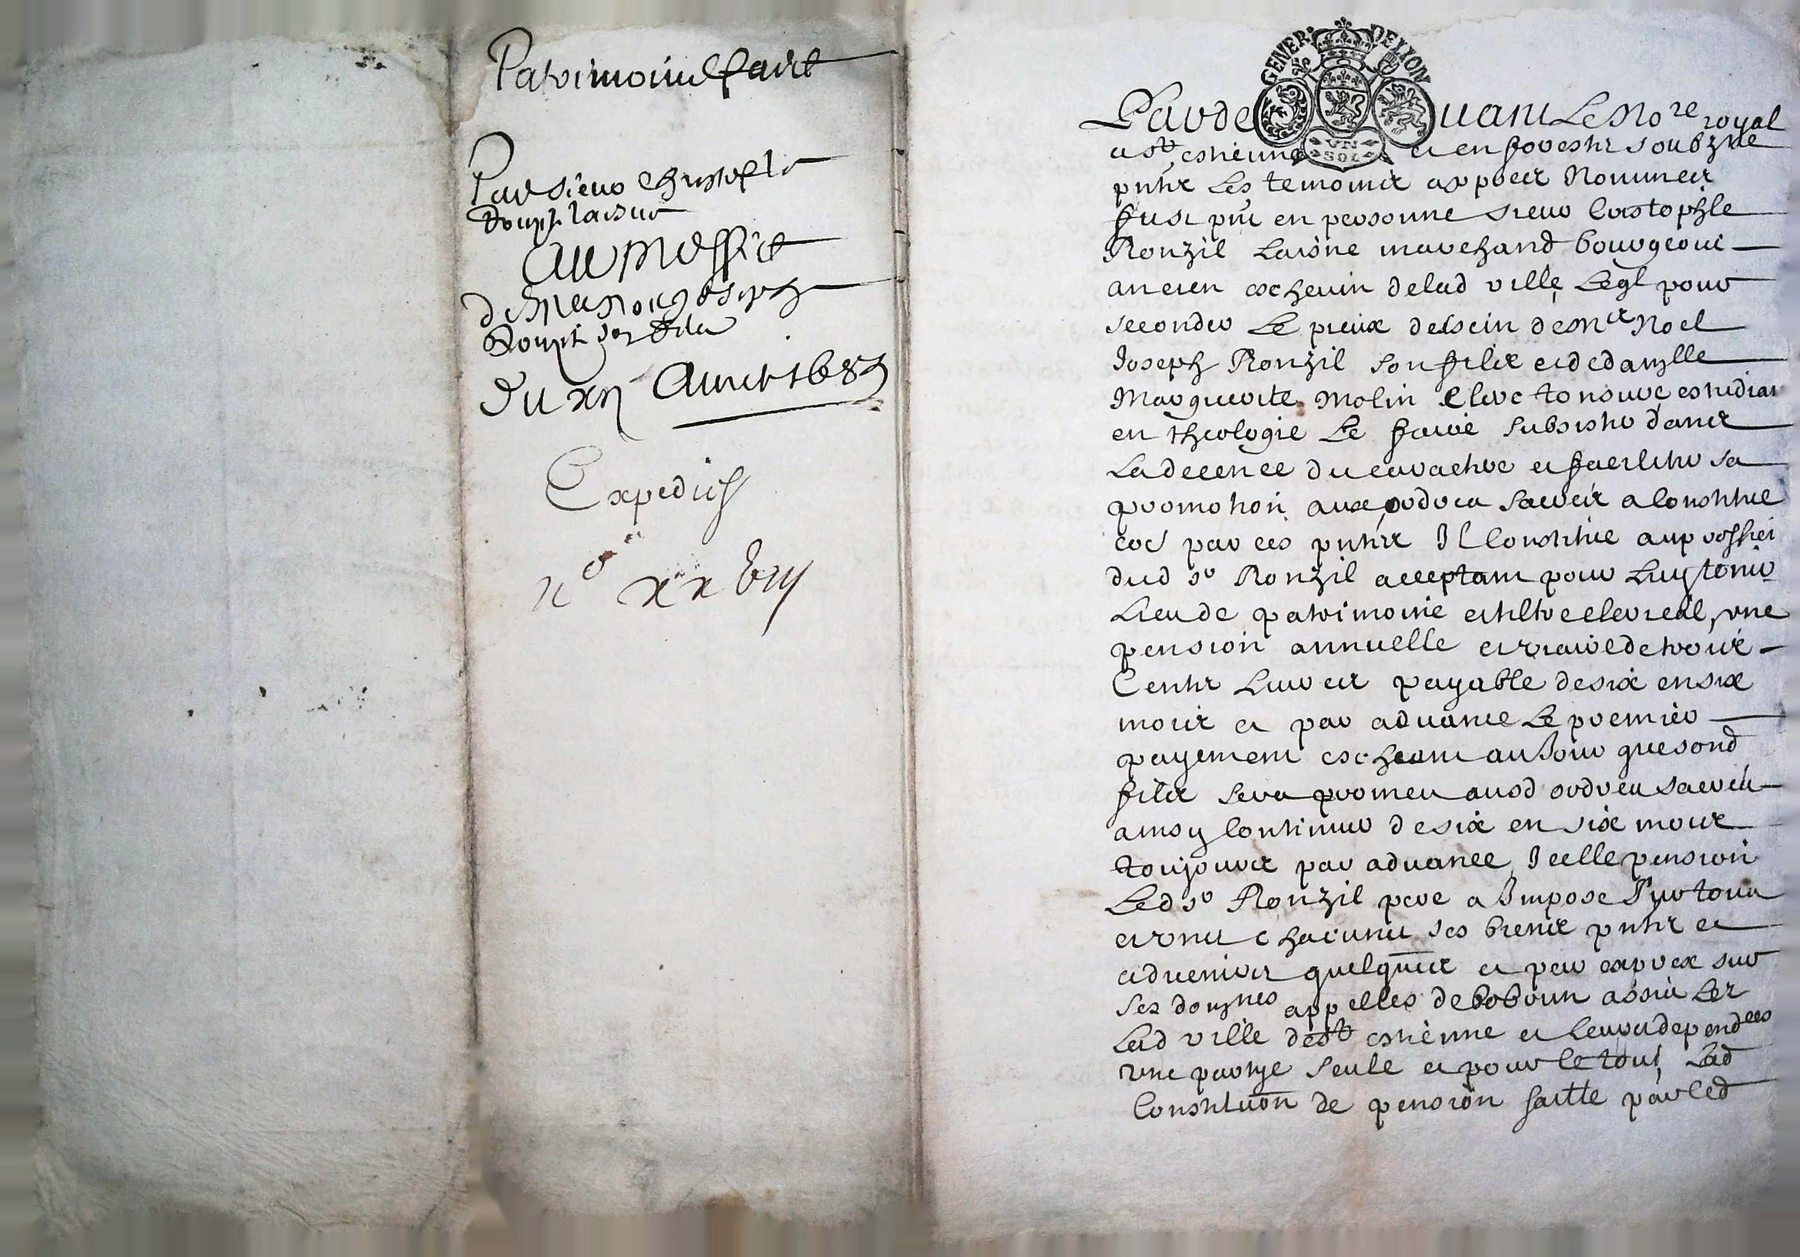 Patrimoine faict
Par sieur Christophle
Ronzil laisné
Au proffict
de Me Noel Joseph
Ronzil son fils
Du xij Avril 168
Expedié
n° xx
GENER DE LYON
VN SOL
Pardevant Le No.re royal
a st estienne et en forestz soubzné
pntz Les temoins appres Nommes
fust pnt en personne sieur Cristophle
Ronzil Laisne marchand bourgeois
ancien eschevin de lad ville, Leql pour
seconder Le pieux dessein de Mre Noel
Joseph Ronzil son filz et de damlle
Marguerite Molin Clerc tonsuré estudiant
en theologie Le faire subsister dans
La decence du caractere et faciliter sa
promotion aux ordres sacres a Constitué
par ces pntes Il Constitue au proffict
dud sr Ronzil acceptant pour Luy tenir
Lieu de patrimoine et tiltre clerical, une
pension annuelle et viaire de trois
Centz Livres payable de six en six
mois et par advance Le premier
payement escheant au Jour que sond
filz sera promeu ausd ordres sacres
ainsy Continuer de six en six mois
toujours par advance, Icelle pension
Led sr Ronzil pere a Impose sur tous
et uns chacuns ses biens pntz et
advenirs quelquns et par expres sur
ses domnes appelles de assis Les
Lad ville de st estienne et Leurs dependces
une partye seule et pour le tout, Lad
Constituon de pension faitte par led